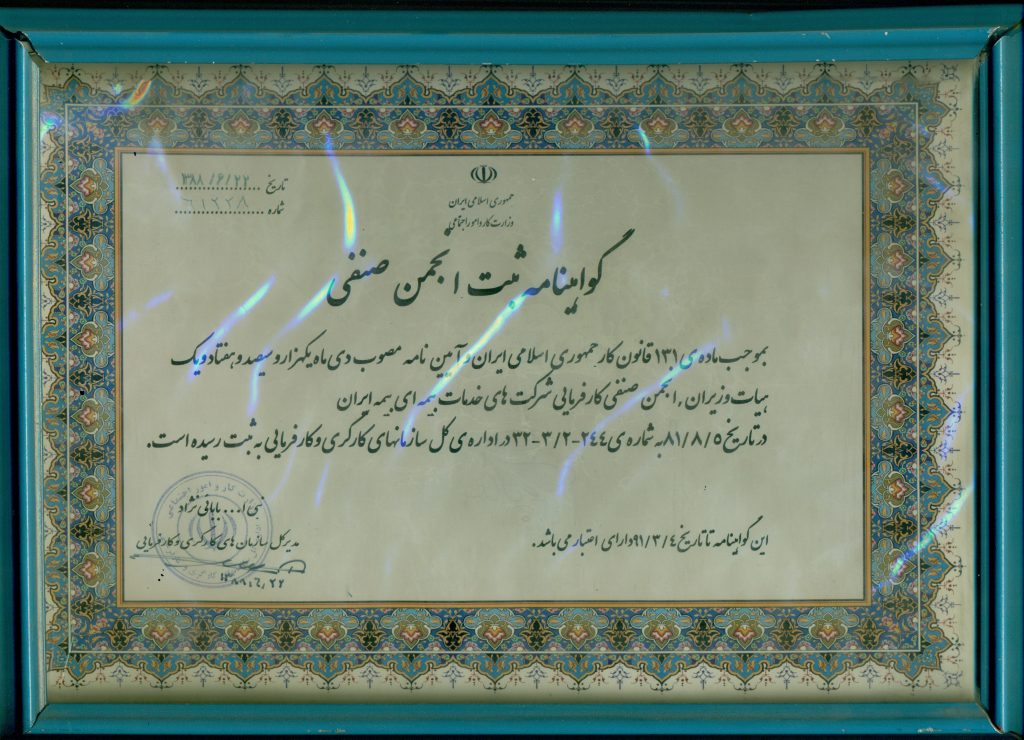 جمهوری اسلامی ایران
وزارت کار و امور اجتماعی
تاریخ ۱۳۸۸/۶/۲۲
شماره ۶۱۲۲۸
گواهینامه ثبت انجمن صنفی
بموجب ماده ی ۱۳۱ قانون کار جمهوری اسلامی ایران و آیین نامه مصوب دی ماه یکهزار و سیصد و هفتاد و یک
هیات وزیران ، انجمن صنفی کارفرمایی شرکت های خدمات بیمه ای بیمه ایران
در تاریخ ۸۱/۸/۵ به شماره ی ۲۴۴-۳/۲-۳۲ در اداره ی کل سازمانهای کارگری و کارفرمایی به ثبت رسیده است.
این گواهینامه تا تاریخ ۹۱/۳/۴ دارای اعتبار می باشد.
نبی ا... بابائی نژاد
مدیرکل سازمان های کارگری و کارفرمایی
۱۳۸۸،۶،۲۲